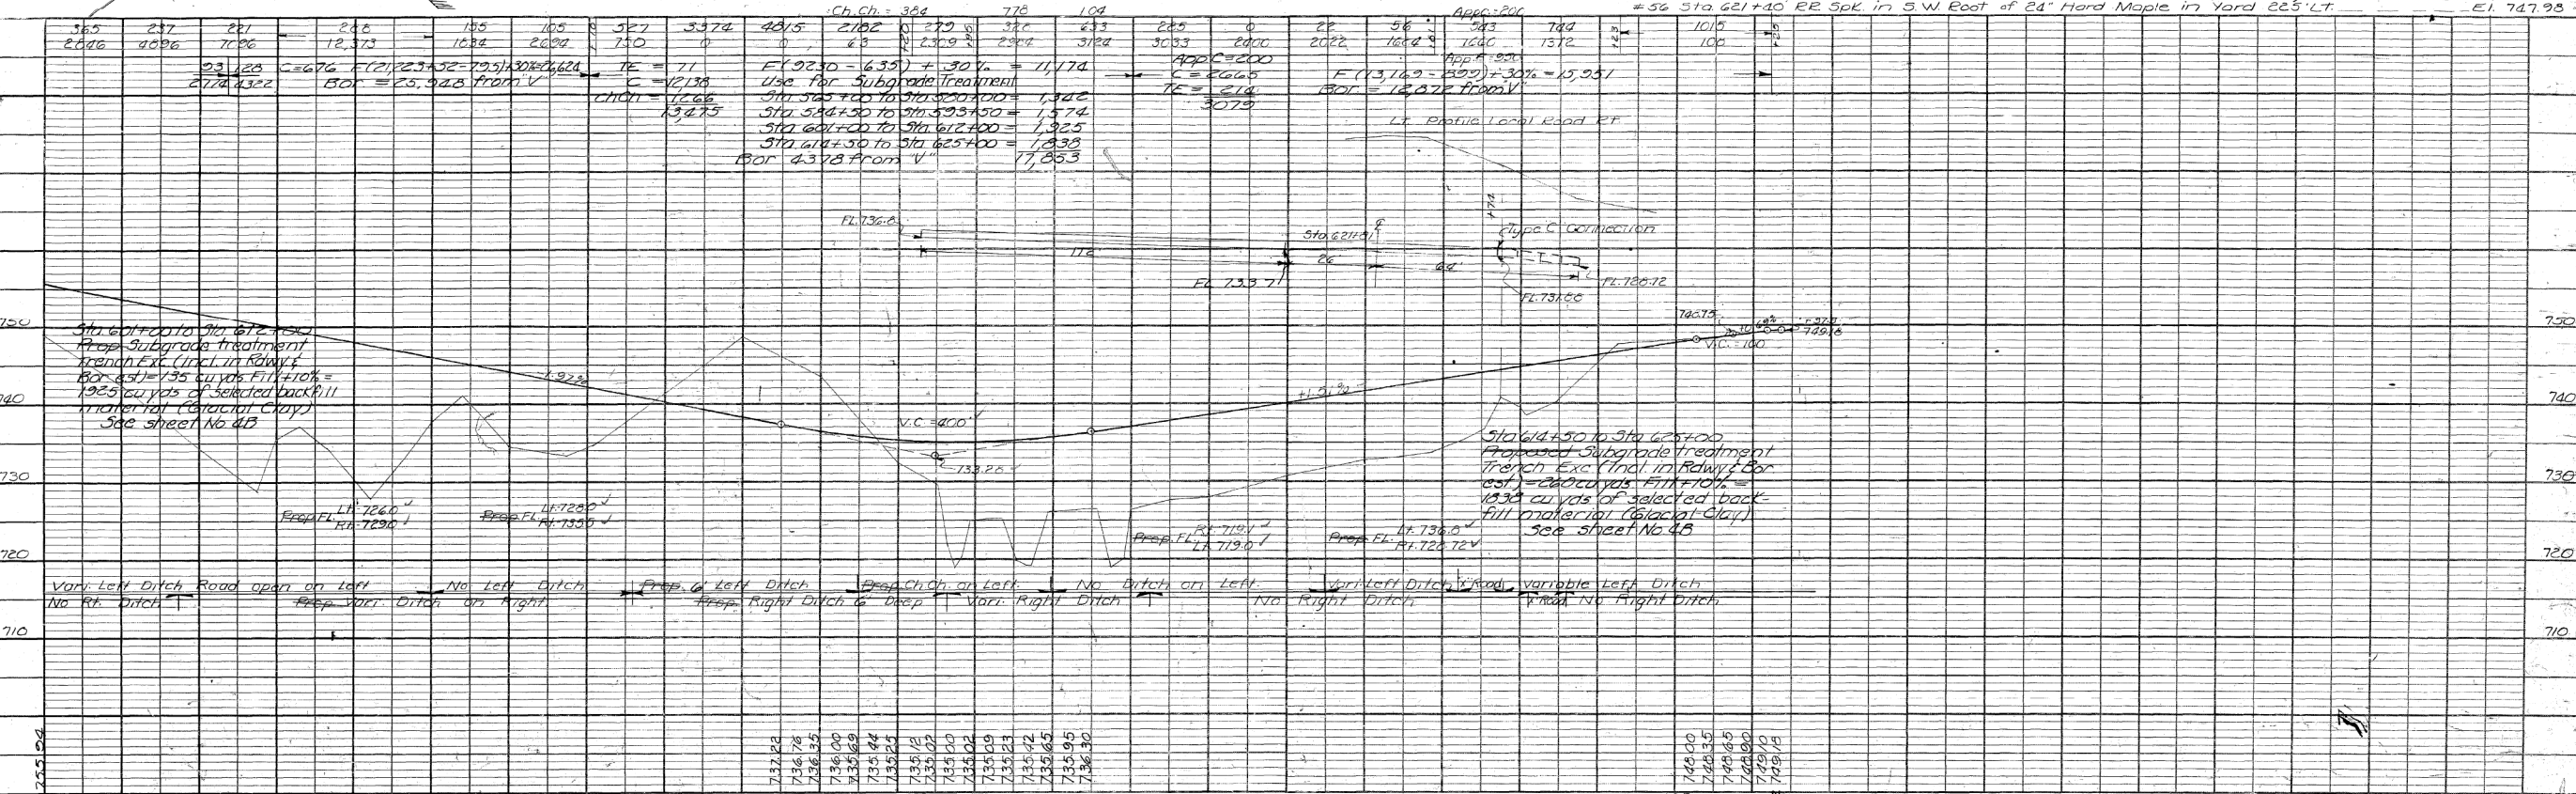 Ch.Ch. = 384 778 104
App.C=200
#56 Sta. 621+40 RR Spk. in S.W. Root of 24" Hard Maple in Yard 225' LT. El. 747.98
365 237 221 268 155 105 527 3374 4815 2182 279 328 633 285 0 22 56 543 744 1015
2646 4896 7096 12,373 1634 2694 750 0 0 63 2309 2964 3124 3033 2400 2022 1664 1660 1312 100
93 128
2774 4322
C=676 F(21,223+52-795)+30%=26,624
Bor. = 25,948 from "V"
TE = 71
C = 12,138
Ch.Ch = 1,266
13,475
F(9230 - 635) + 30% = 11,174
Use for Subgrade Treatment
Sta. 565+00 to Sta. 580+00 = 1,342
Sta. 584+50 to Sta. 593+50 = 1,574
Sta. 601+00 to Sta. 612+00 = 1,925
Sta. 614+50 to Sta. 625+00 = 1,838
Bor 4378 from "V" 17,853
App C=200
C = 2665
TE = 214
3079
F (13,169 - 899) + 30% = 15,951
Bor. = 12,872 from "V"
Lt. Profile Local Road Rt.
+74
FL. 736.8
Sta. 621+81
Type C Connection
26
64'
FL. 733.7
FL. 728.72
FL. 731.88
750
740
730
720
710
Sta 601+00 to Sta 612+00
Prop Subgrade treatment
Trench Exc (Incl. in Rdwy &
Bor est)=135 cu yds Fill+10%=
1925 cu yds of selected backfill
material (Glacial Clay)
See sheet No 4B
-1.97%
V.C. = 400'
733.28
+1.51%
748.75
749.18
V.C. = 100
Sta 614+50 to Sta 625+00
Proposed Subgrade treatment
Trench Exc (Incl. in Rdwy & Bor
est)=260 cu yds Fill+10% =
1838 cu yds of selected back-
fill material (Glacial-Clay)
See sheet No 4B
750
740
730
720
710
Prop FL Lt. 726.0
Rt. 729.0
Prop FL Lt. 728.0
Rt. 735.5
Prop. FL. Rt. 719.1
Lt. 719.0
Prop FL. Lt. 736.8
Rt. 728.72
Vari. Left Ditch Road open on Left No Left Ditch Prop. 6' Left Ditch Prop. Ch Ch. on Left. No Ditch on Left. Vari. Left Ditch X Road Variable Left Ditch
No Rt. Ditch Prop Vari. Ditch on Right Prop. Right Ditch 6' Deep Vari. Right Ditch No Right Ditch X Road No Right Ditch
737.22
736.76
736.35
736.00
735.69
735.44
735.25
735.12
735.02
735.00
735.02
735.09
735.23
735.42
735.65
735.95
736.30
748.00
748.35
748.65
748.90
749.10
749.18